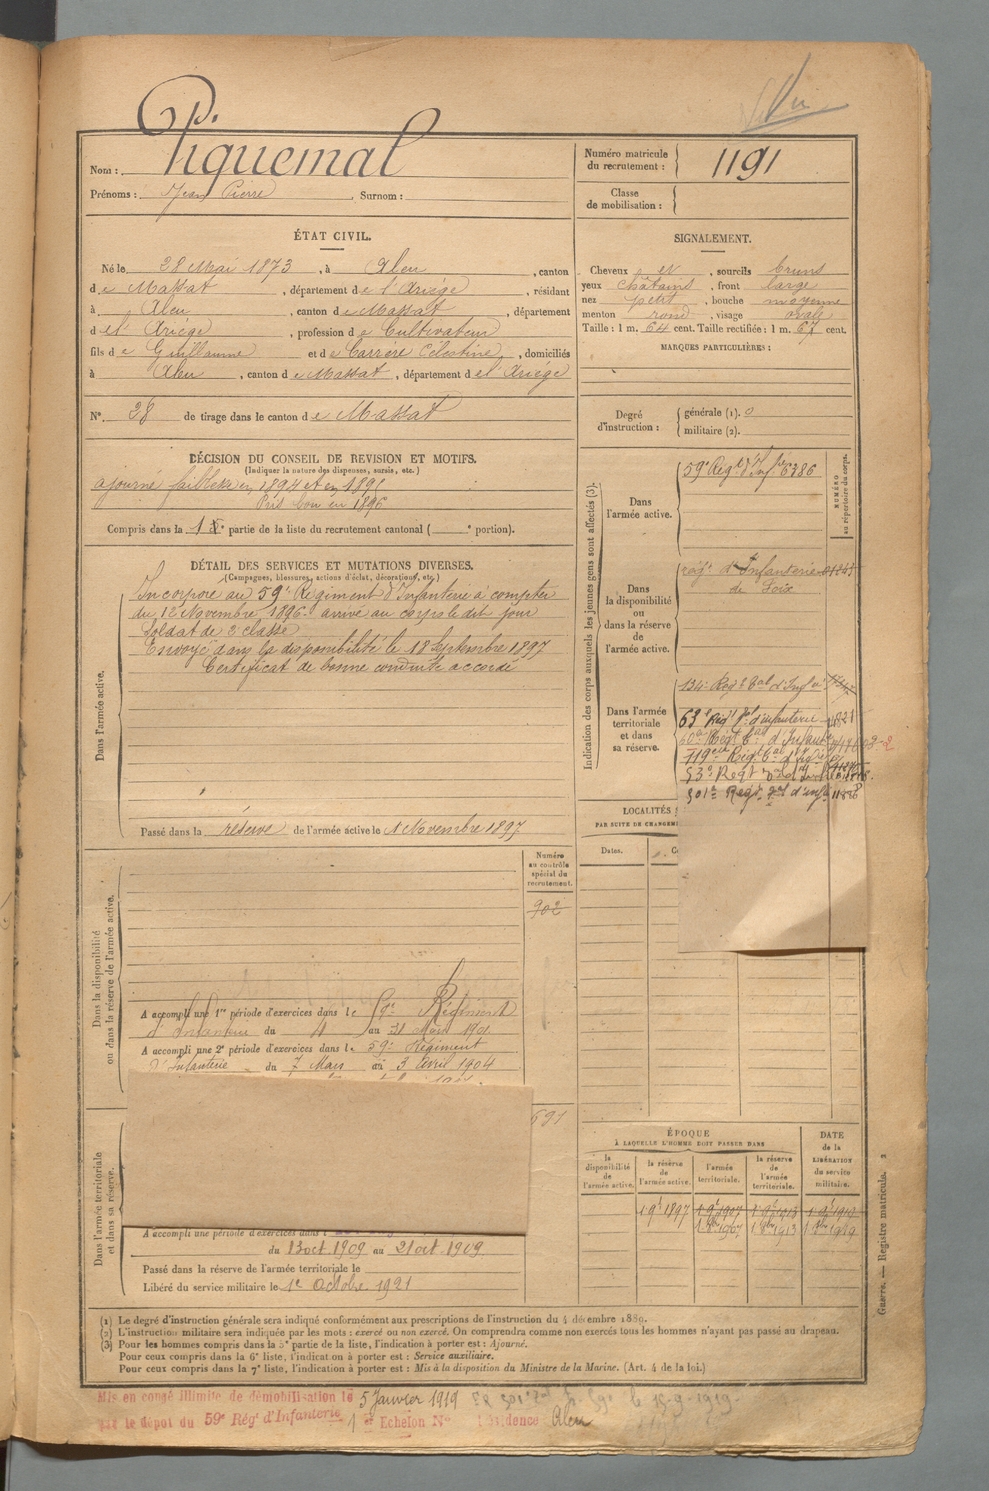 Piquemal
Nom :
Prénoms : Jean Pierre , Surnom :
Numéro matricule du recrutement : 1191
Classe de mobilisation :
ÉTAT CIVIL.
Né le 28 Mai 1873 , à Aleu , canton
de Massat , département de l'Ariége , résidant
à Aleu , canton de Massat , département
de l'Ariége , profession de Cultivateur
fils de Guillaume et de Carrère Célestine , domiciliés
à Aleu , canton de Massat , département de l'Ariége
N° 28 de tirage dans le canton de Massat
SIGNALEMENT.
Cheveux et , sourcils bruns
yeux châtains , front large
nez petit , bouche moyenne
menton rond , visage ovale
Taille : 1 m. 64 cent. Taille rectifiée : 1 m. 67 cent.
MARQUES PARTICULIÈRES :
Degré d'instruction : générale (1). 0
militaire (2).
DÉCISION DU CONSEIL DE REVISION ET MOTIFS.
(Indiquer la nature des dispenses, sursis, etc.)
ajourné faiblesse en 1894 et en 1895
Pris bon en 1896
Compris dans la 1e partie de la liste du recrutement cantonal ( e portion).
DÉTAIL DES SERVICES ET MUTATIONS DIVERSES.
(Campagnes, blessures, actions d'éclat, décorations, etc.)
Dans l'armée active.
Incorporé au 59e Régiment d'Infanterie à compter
du 12 Novembre 1896 arrivé au corps le dit jour
Soldat de 2 classe
Envoyé dans la disponibilité le 18 Septembre 1897
Certificat de bonne conduite accordé
Passé dans la réserve de l'armée active le 1 Novembre 1897
Indication des corps auxquels les jeunes gens sont affectés (3).
NUMÉRO au répertoire du corps.
Dans l'armée active.
59e Régt d'Infie 6386
Dans la disponibilité ou dans la réserve de l'armée active.
régt d'Infanterie
de Foix
Dans l'armée territoriale et dans sa réserve.
134e Regt Tal d'Infie
63e Régt Tal d'infanterie
119eme Regt Tal d'Infie
53e Regt
301e Regt Tal d'infie
LOCALITÉS
PAR SUITE DE CHANGEM
Dates.
Dans la disponibilité ou dans la réserve de l'armée active.
Numéro au contrôle spécial du recrutement.
902
A accompli une 1re période d'exercices dans le 59e Régiment
d'Infanterie du 4 au 31 Mars 1901
A accompli une 2e période d'exercices dans le 59e Régiment
d'Infanterie du 7 Mars au 3 Avril 1904
691
Dans l'armée territoriale et dans sa réserve.
A accompli une période d'exercices dans :
du 13 oct 1909 au 21 oct 1909
Passé dans la réserve de l'armée territoriale le
Libéré du service militaire le 1er Octobre 1921
ÉPOQUE
À LAQUELLE L'HOMME DOIT PASSER DANS
la disponibilité de l'armée active.
la réserve de l'armée active.
l'armée territoriale.
la réserve de l'armée territoriale.
DATE de la LIBÉRATION du service militaire.
1 9e 1897 1 9e 1907 1 9e 1913 1 9e 1919
1 8bre 1907 1 8bre 1913 1 8bre 1919
Guerre. — Registre matricule. 2
(1) Le degré d'instruction générale sera indiqué conformément aux prescriptions de l'instruction du 4 décembre 1889.
(2) L'instruction militaire sera indiquée par les mots : exercé ou non exercé. On comprendra comme non exercés tous les hommes n'ayant pas passé au drapeau.
(3) Pour les hommes compris dans la 5e partie de la liste, l'indication à porter est : Ajourné.
Pour ceux compris dans la 6e liste, l'indication à porter est : Service auxiliaire.
Pour ceux compris dans la 7e liste, l'indication à porter est : Mis à la disposition du Ministre de la Marine. (Art. 4 de la loi.)
Mis en congé illimité de démobilisation le 5 Janvier 1919
par le dépôt du 59e Régt d'Infanterie 1er Echelon N° Résidence Aleu